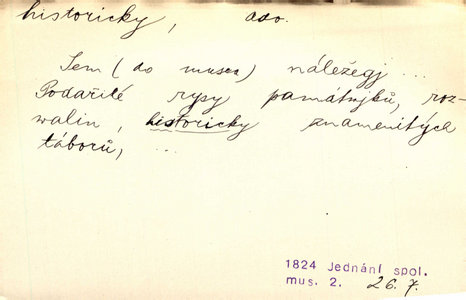 historicky, adv.
Sem (do musea) náležegj ...
Podařilé rysy památnjků, roz-
walin, historicky znamenitých
táborů, ...
1824 Jednání spol.
mus. 2. 26.7.